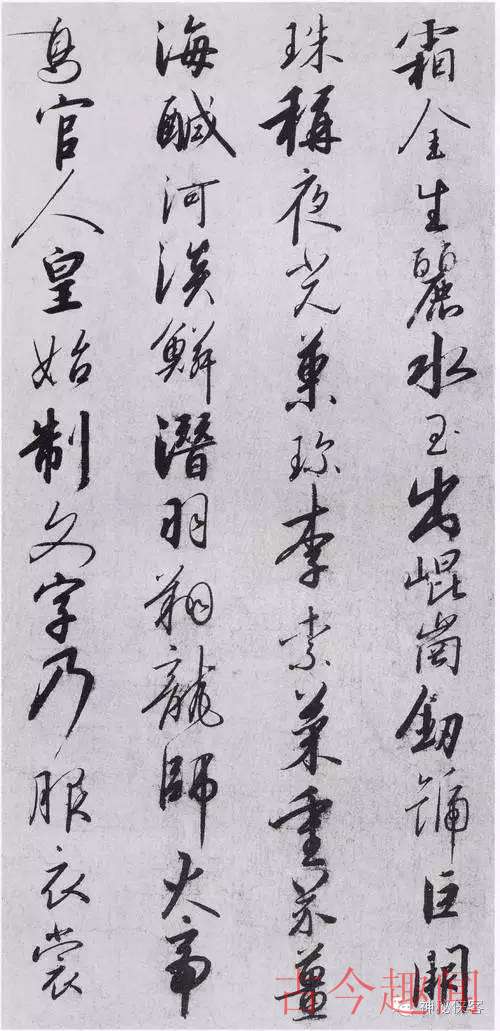 霜金生麗水玉出崐崗釼號巨闕
珠稱夜光菓珍李柰菜重芥薑
海醎河淡鱗潛羽翔龍師火帝
鳥官人皇始制文字乃服衣裳
古今趣闻
神秘侠客